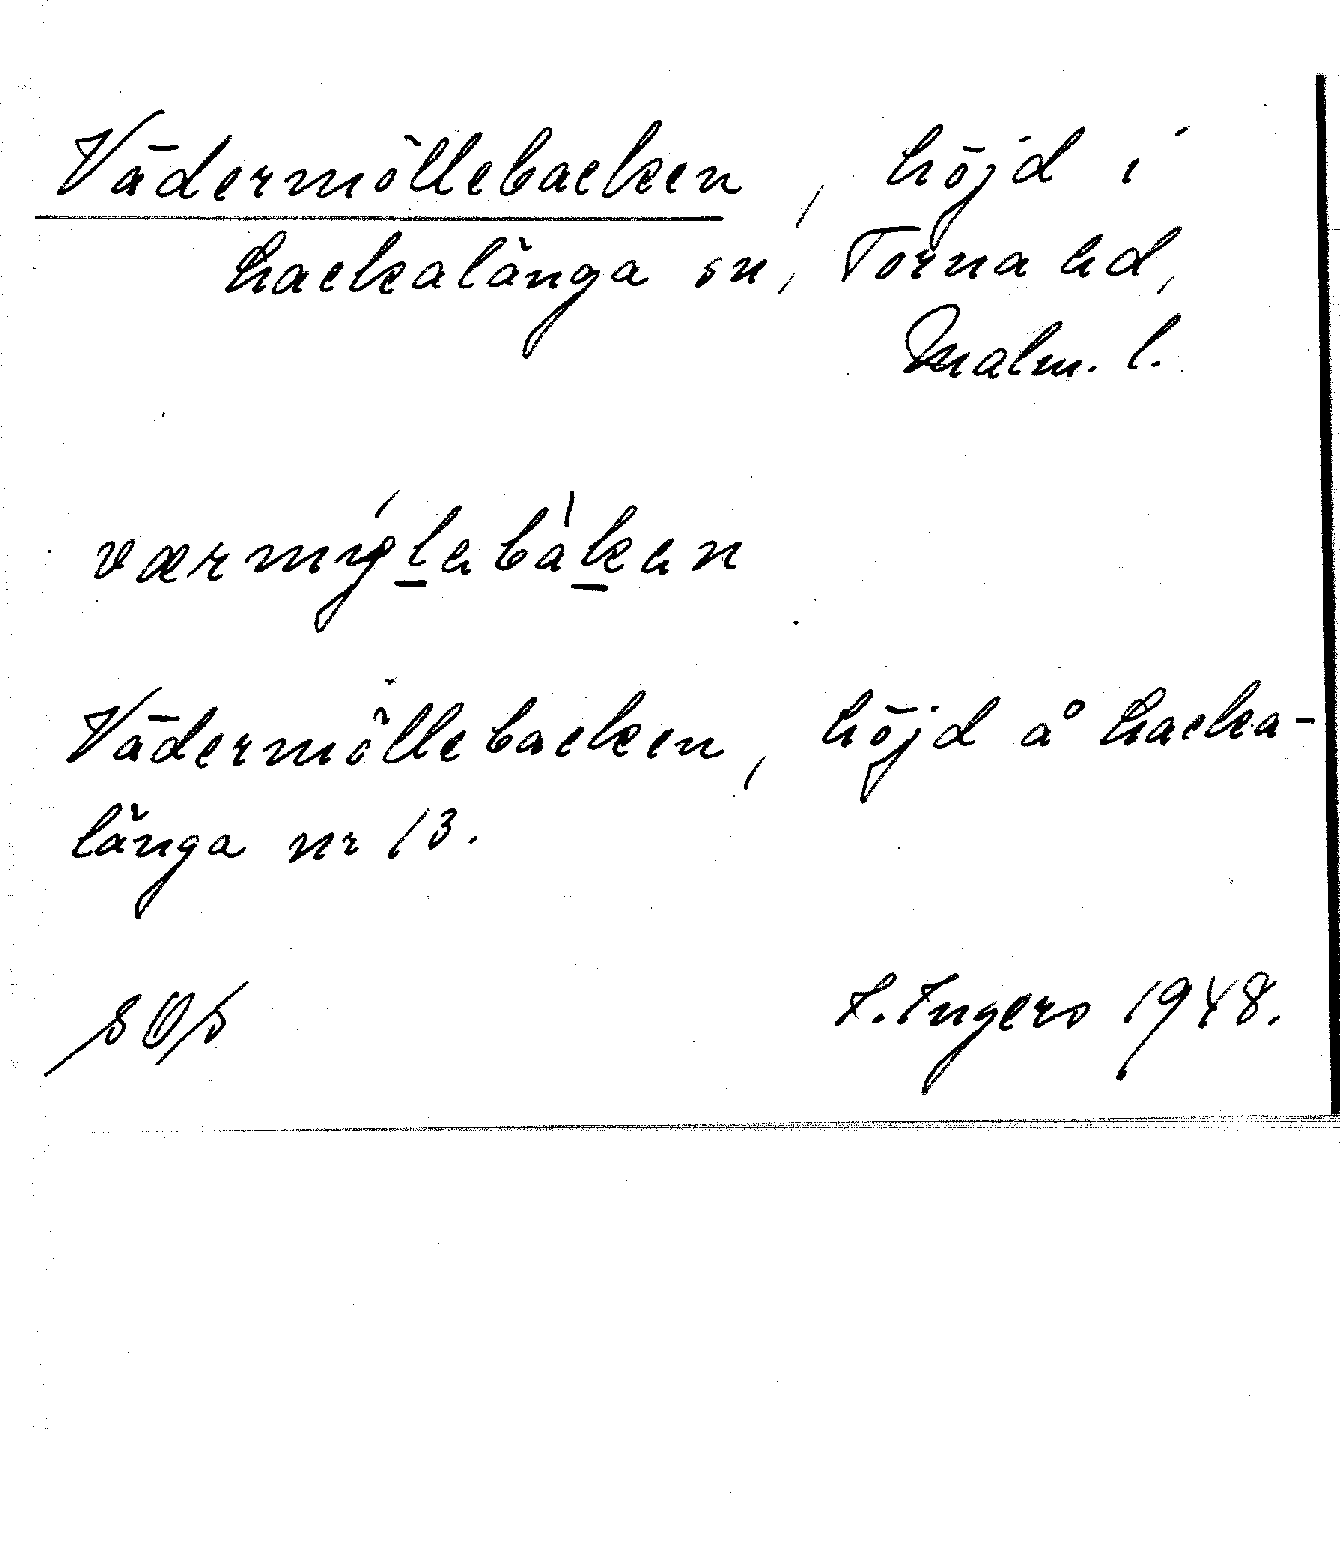 Vädermöllebacken, höjd i
Hackalänga sn, Torna hd,
Malm. l.
Vädermöllebacken, höjd å Hacka-
länga nr 13.
SOS I. Ingers 1948.